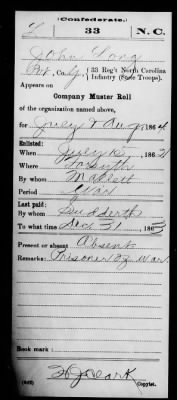 (Confederate.)
L 33 N.C.
John Long
Pvt, Co. G, 33 Reg't North Carolina
Infantry (State Troops).
Appears on
Company Muster Roll
of the organization named above,
for July & Aug, 1864
Enlisted:
When July 186
Where Forsyth
By whom Mallett
Period War
Last paid:
By whom Sudderth
To what time Dec 31, 1863
Present or absent Absent
Remarks: Prisoner of War
Book mark:
(642) Copyist.